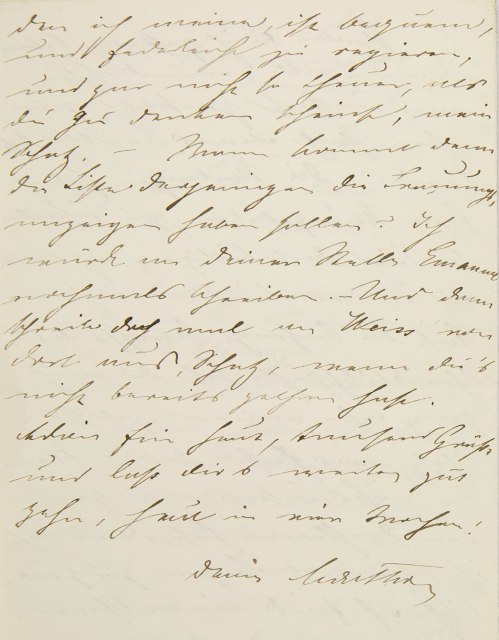 den ich meine, ist bequem,
und federleicht zu regieren,
und gar nicht so theuer, als
du zu denken scheinst, mein
Schatz. — Wann kommt denn
die Liste derjenigen die Trauungs-
anzeigen haben sollen? Ich
würde an deiner Stelle Emanuel
nochmals schreiben. – Und dann
schreibe doch mal an Weiss von
dort aus, Schatz, wenn du's
nicht bereits gethan hast.
Adieu für heut, tausend Grüße
und laß dir's weiter gut
gehn, heut in vier Wochen!
Dein